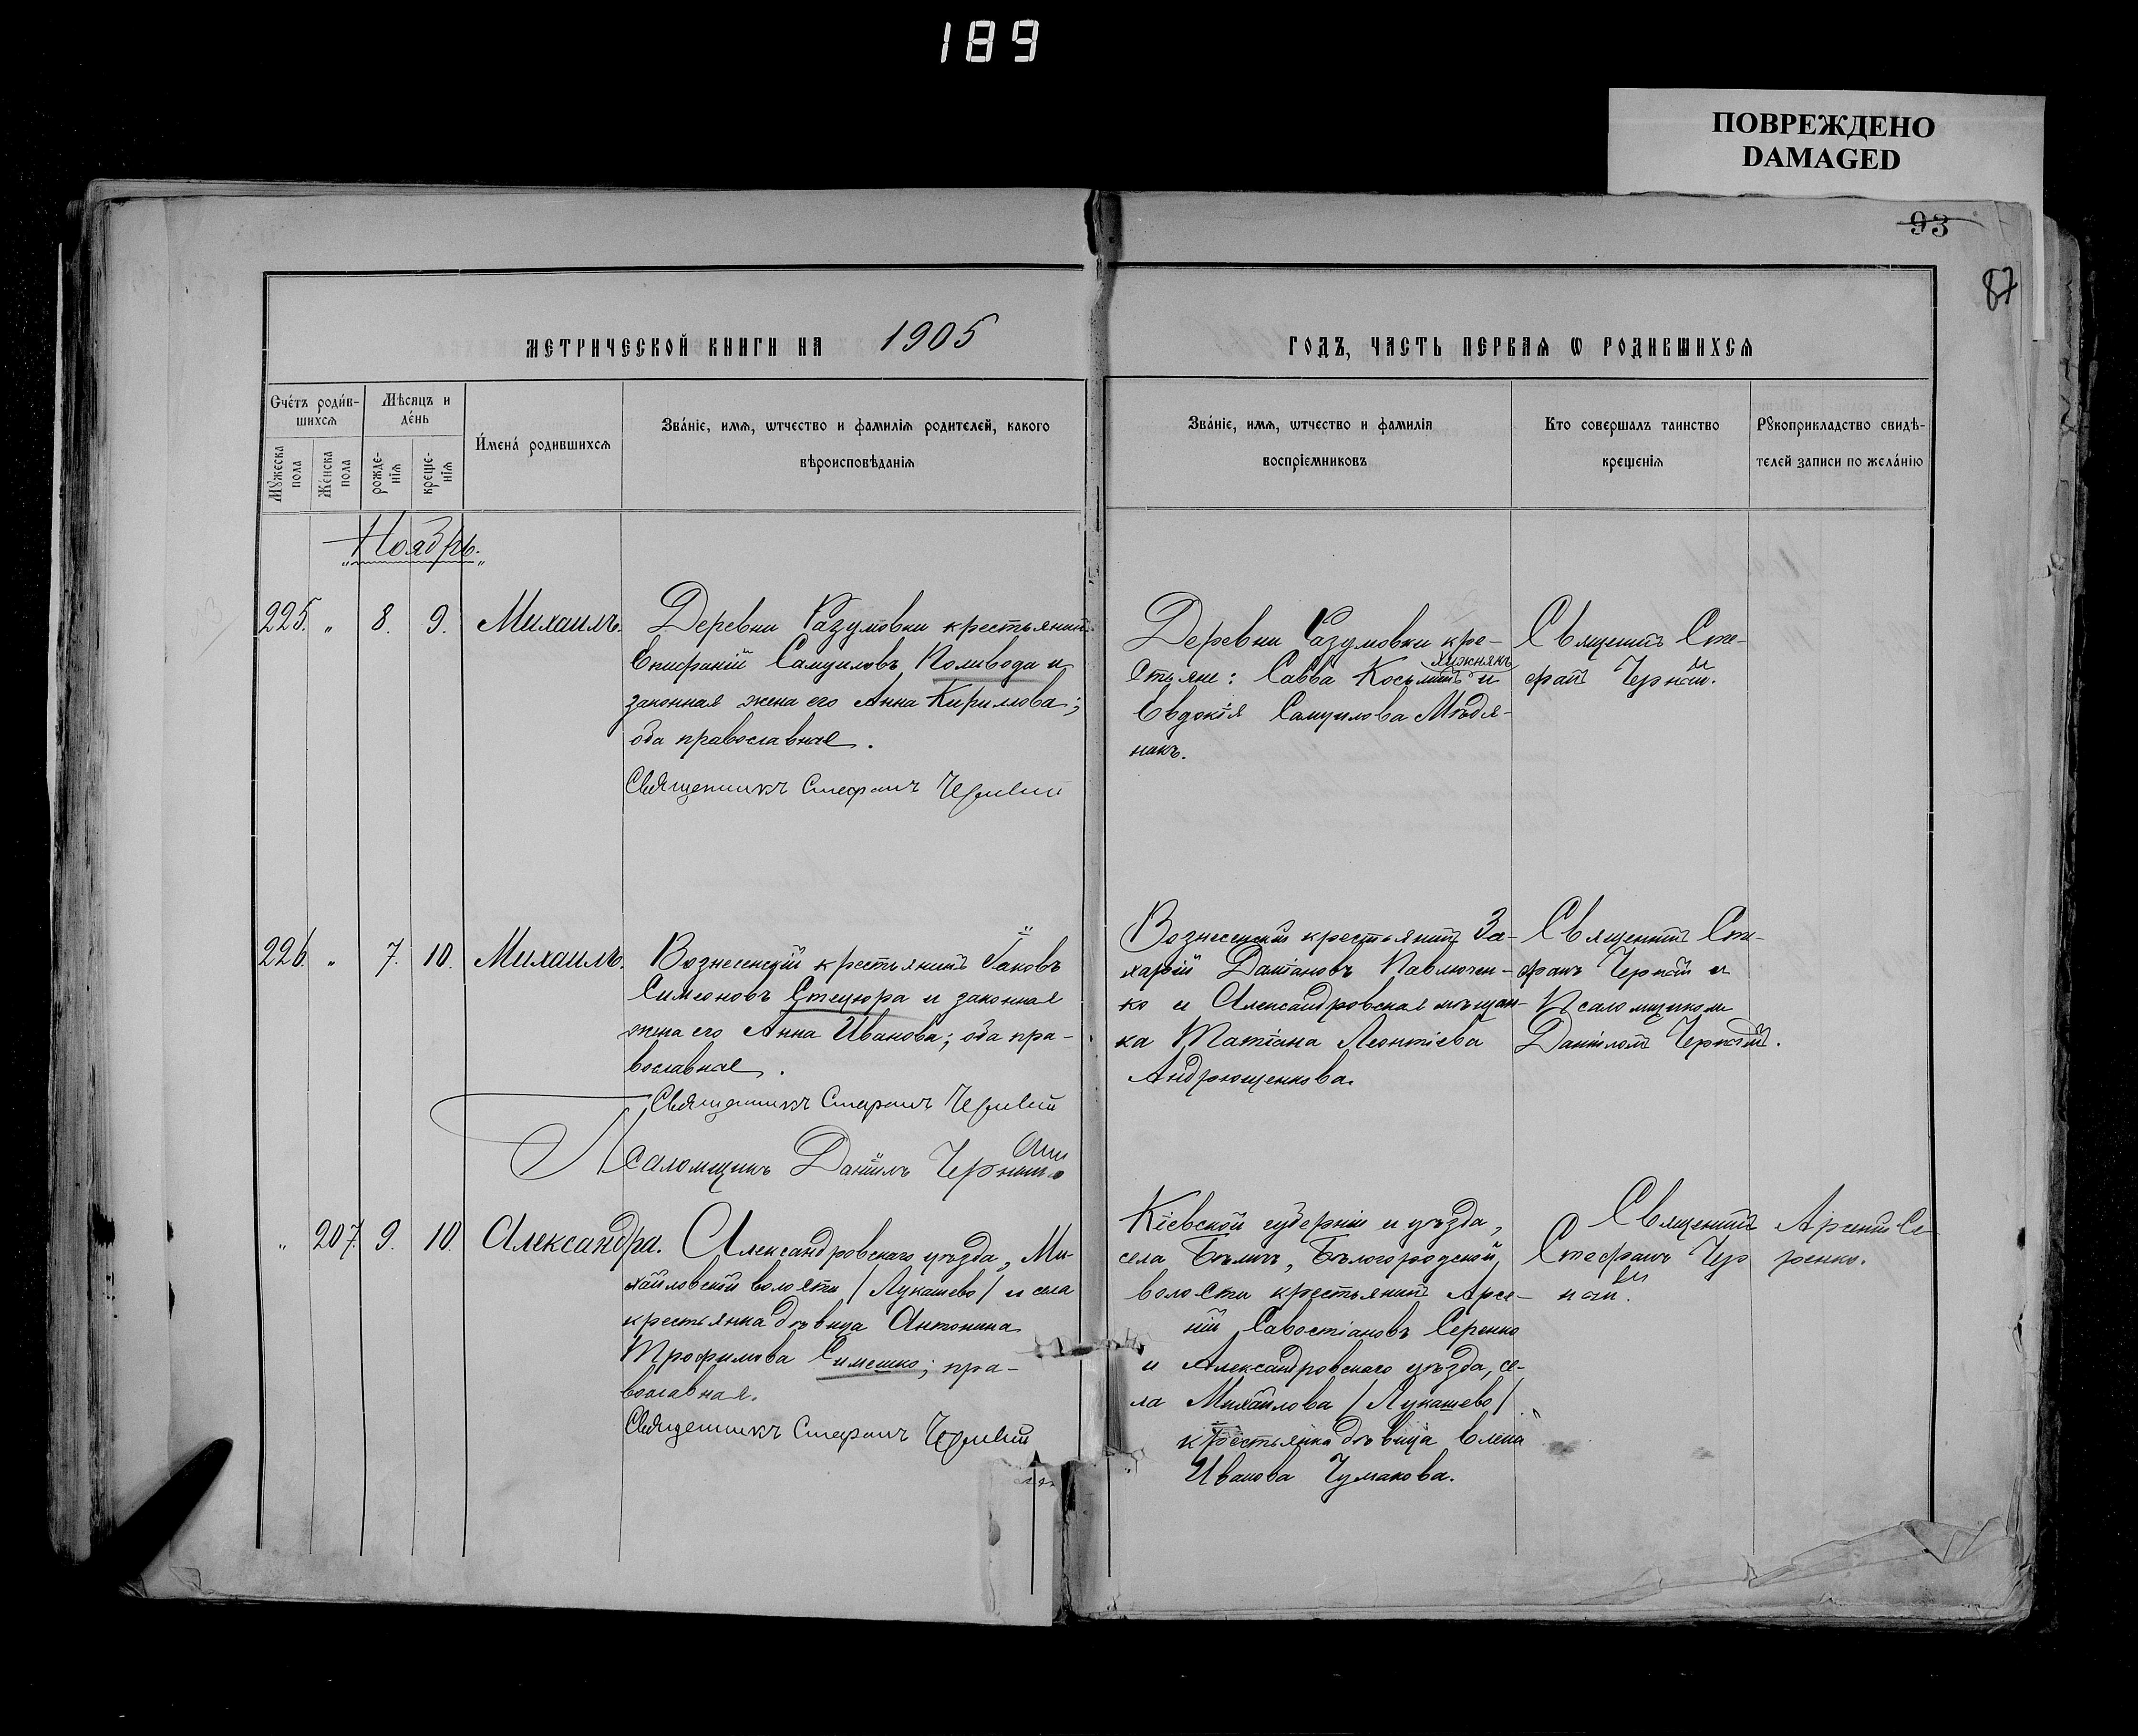 189
ПОВРЕЖДЕНО
DAMAGED
93
87
МЕТРИЧЕСКОЙ КНИГИ НА 1905
ГОДЪ, ЧАСТЬ ПЕРВАЯ Ѡ РОДИВШИХСЯ
Счетъ родив-
шихся
Мѣсяцъ и
день
Мужеска
пола
Женска
пола
рожде-
нія
креще-
нія
Имена родившихся
Званіе, имя, ѿчество и фамилія родителей, какого
вѣроисповѣданія
Званіе, имя, ѿчество и фамилія
воспріемниковъ
Кто совершалъ таинство
крещенія
Рукоприкладство свидѣ-
телей записи по желанію
Ноябрь.
225. " 8. 9. Михаилъ.
Деревни Разумовки крестьянинъ
Епифаній Самуиловъ Поливода и
законная жена его Анна Кириллова;
оба православные.
Священникъ Стефанъ Черный
Деревни Разумовки кре-
стьяне: Савва Косьминъ Хижнякъ и
Евдокія Самуилова Мѣдя-
никъ.
Священникъ Сте-
фанъ Черный.
226. " 7. 10. Михаилъ.
Вознесенскій крестьянинъ Іаковъ
Симеоновъ Стецюра и законная
жена его Анна Иванова; оба пра-
вославные.
Священникъ Стефанъ Черный
Псаломщикъ Даніилъ Черный
Вознесенскій крестьянинъ За-
харій Даміановъ Павлючен-
ко и Александровская мѣщан-
ка Татіана Леонтіева
Андрющенкова.
Священникъ Сте-
фанъ Черный и
Псаломщикомъ
Даніиломъ Чернымъ.
" 207. 9. 10. Александра.
Александровскаго уѣзда, Ми-
хайловской волости /Лукашево/ и села
крестьянка дѣвица Антонина
Трофимова Симешко; пра-
вославная.
Священникъ Стефанъ Черный
Кіевской губерніи и уѣзда,
села Бѣличъ, Бѣлогородской
волости крестьянинъ Арсе-
ній Савостіановъ Серенко
и Александровскаго уѣзда, се-
ла Михайлова /Лукашево/
крестьянка дѣвица Елена
Иванова Чумакова.
Священникъ
Стефанъ Чер
ный.
Арсеній Се-
ренко.